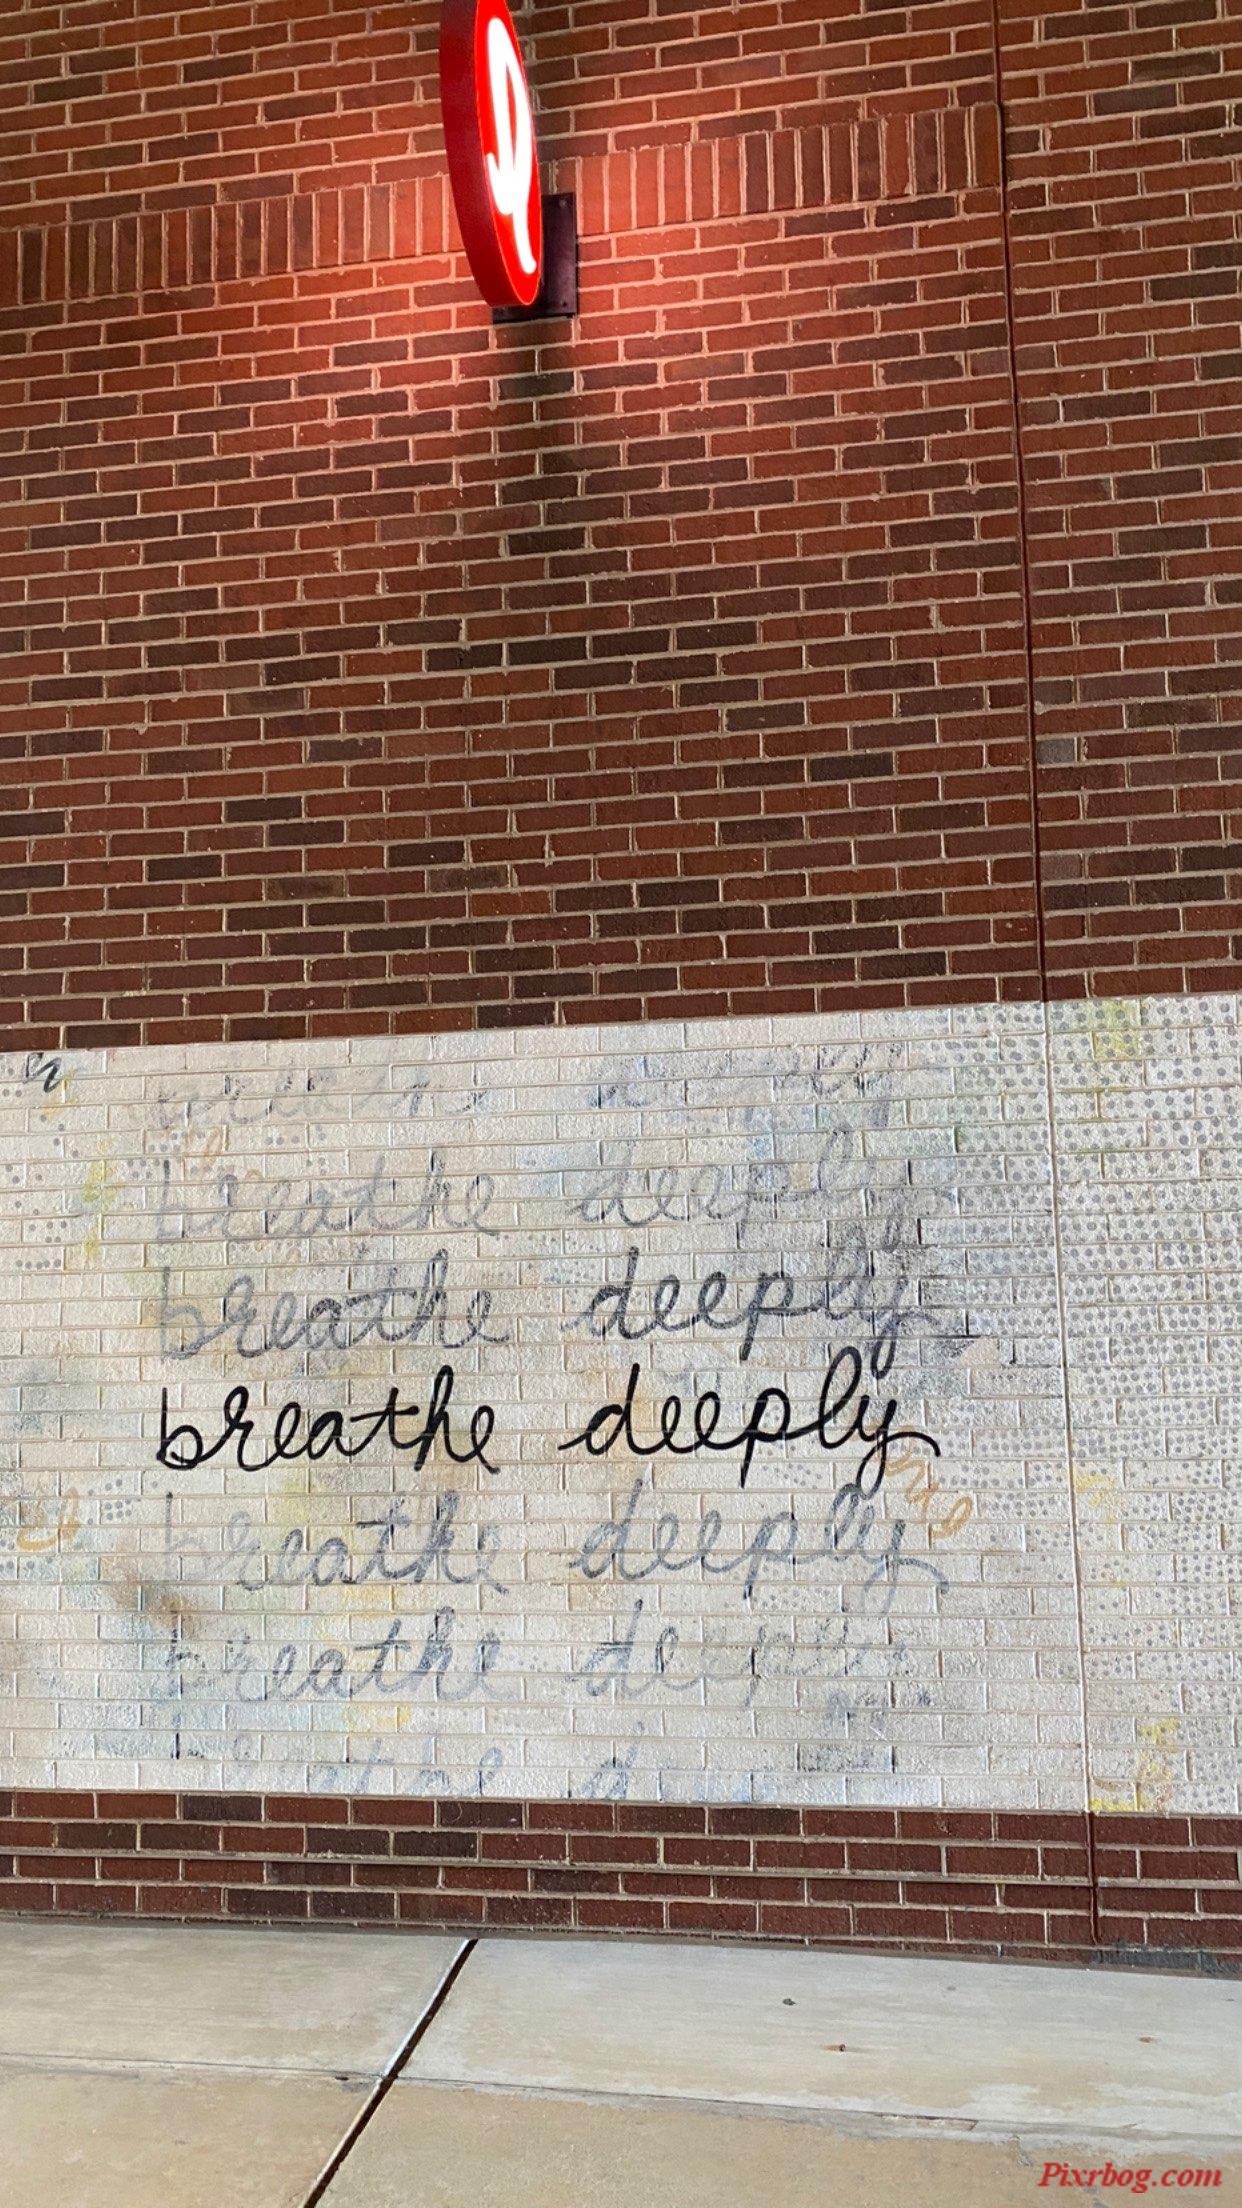 breathe deeply
breathe deeply
breathe deeply
breathe deeply
breathe
Pixrbog.com